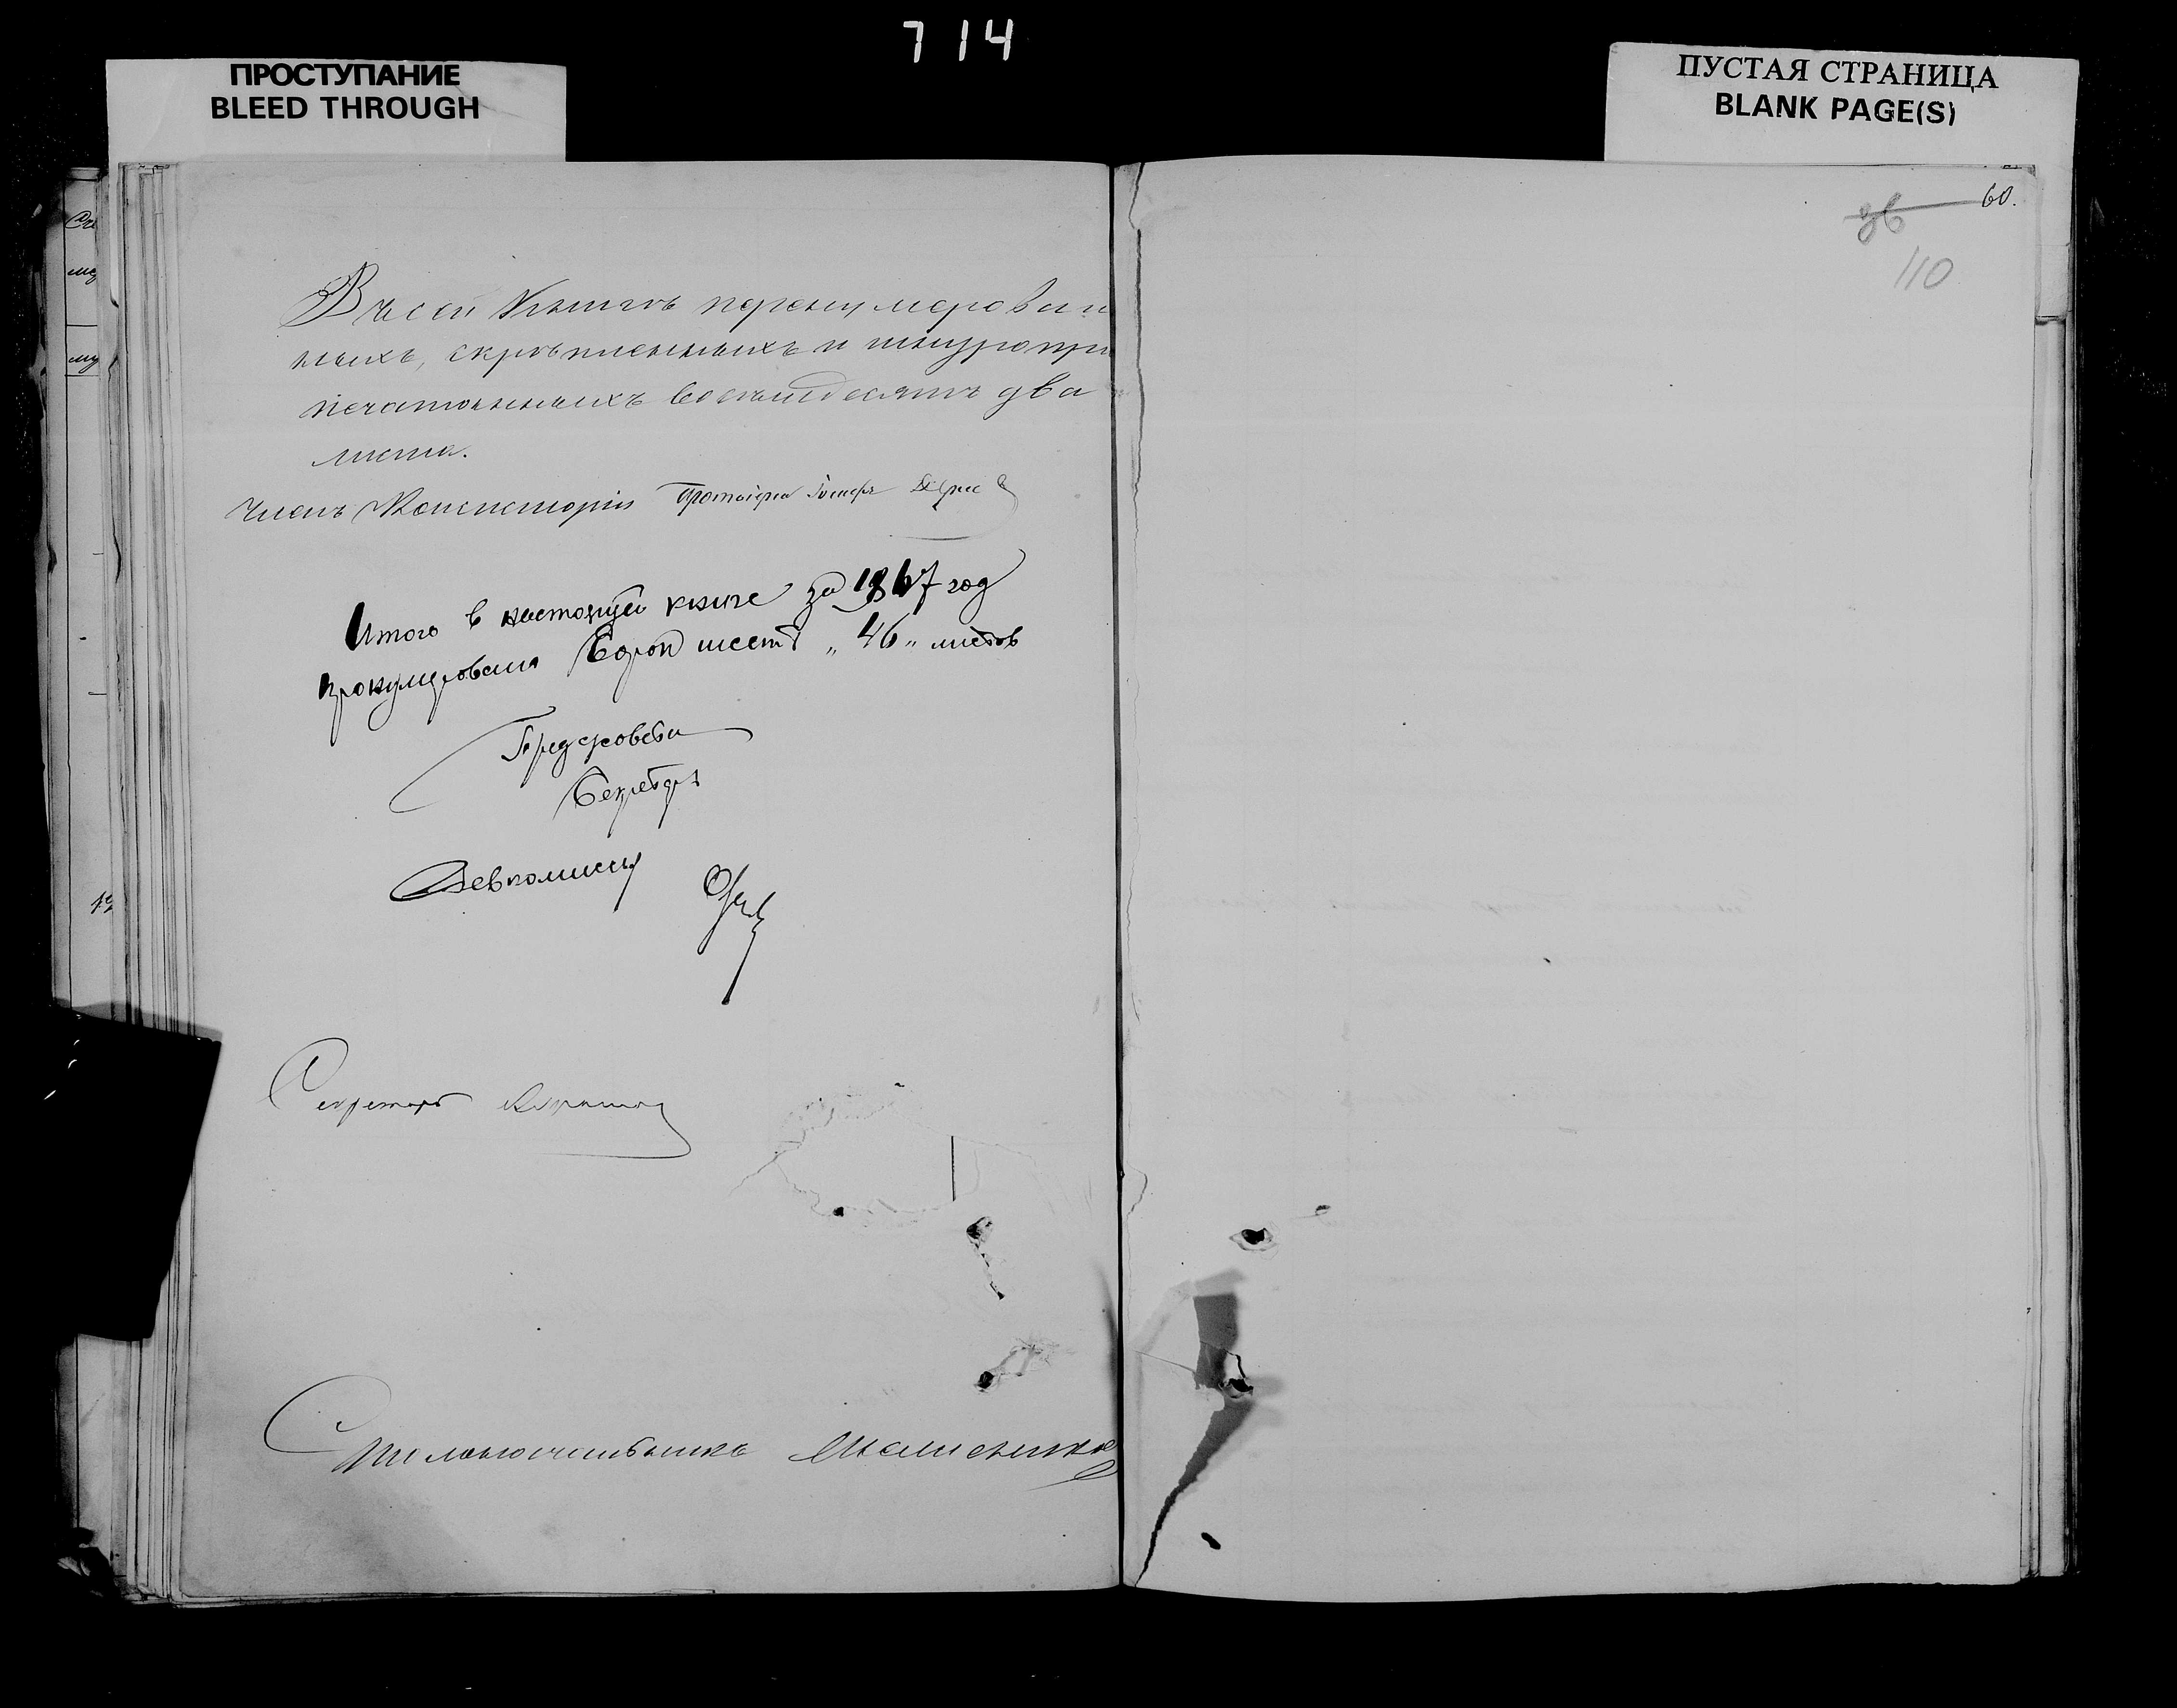 714
ПРОСТУПАНИЕ
BLEED THROUGH
ПУСТАЯ СТРАНИЦА
BLANK PAGE(S)
Въ сей Книгѣ перенумерован
ныхъ, скрѣпленныхъ и шнуропри
печатанныхъ восемьдесятъ два
листа.
Членъ Консисторіи Протоіерей Іосифъ
Итого в настоящей книге за 1867 год
пронумеровано Сорок шесть „46„ листов
Пред сковета
Секретарь
Секретарь
Столоначальникъ
60.
36
110